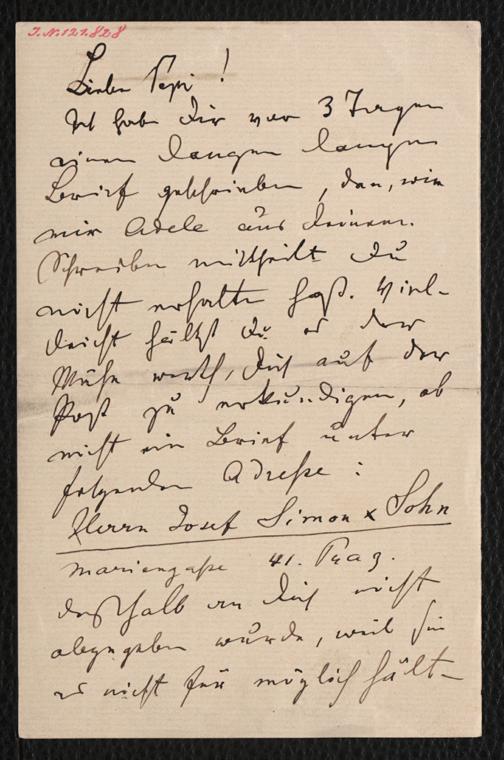 J.N.121.828
Lieber Pepi!
Ich habe Dir vor 3 Tagen
einen langen langen
Brief geschrieben, den, wie
mir Adele aus Deinem
Schreiben mittheilt Du
nicht erhalten hast. Viel-
leicht hältst Du es der
Mühe werth, Dich auf der
Post zu erkundigen, ob
nicht ein Brief unter
folgender Adresse:
Herrn Josef Simon x Sohn
Mariengasse 41. Prag.
deßhalb an Dich nicht
abgegeben wurde, weil sie
es nicht für möglich hält-